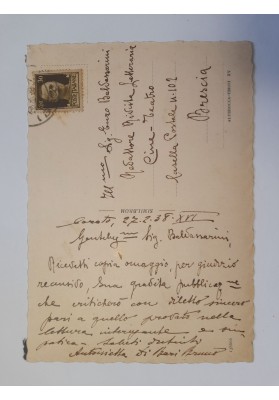 Ill mo Sig. Enzo Baldassarini
Redattore Rivista Letteraria
Cine-Teatro
Casella Postale n. 102
Brescia
27.2.38. XVI
Gentil mo Sig. Baldassarini
Ricevetti copia omaggio, per giudizio
recensivo, Sua gradita pubblicazio=
che criticherò con diletto sincero
pari a quello provato nella
lettura interessante e sim
patica - Saluti distinti
Antonietta Di Bari Bruno